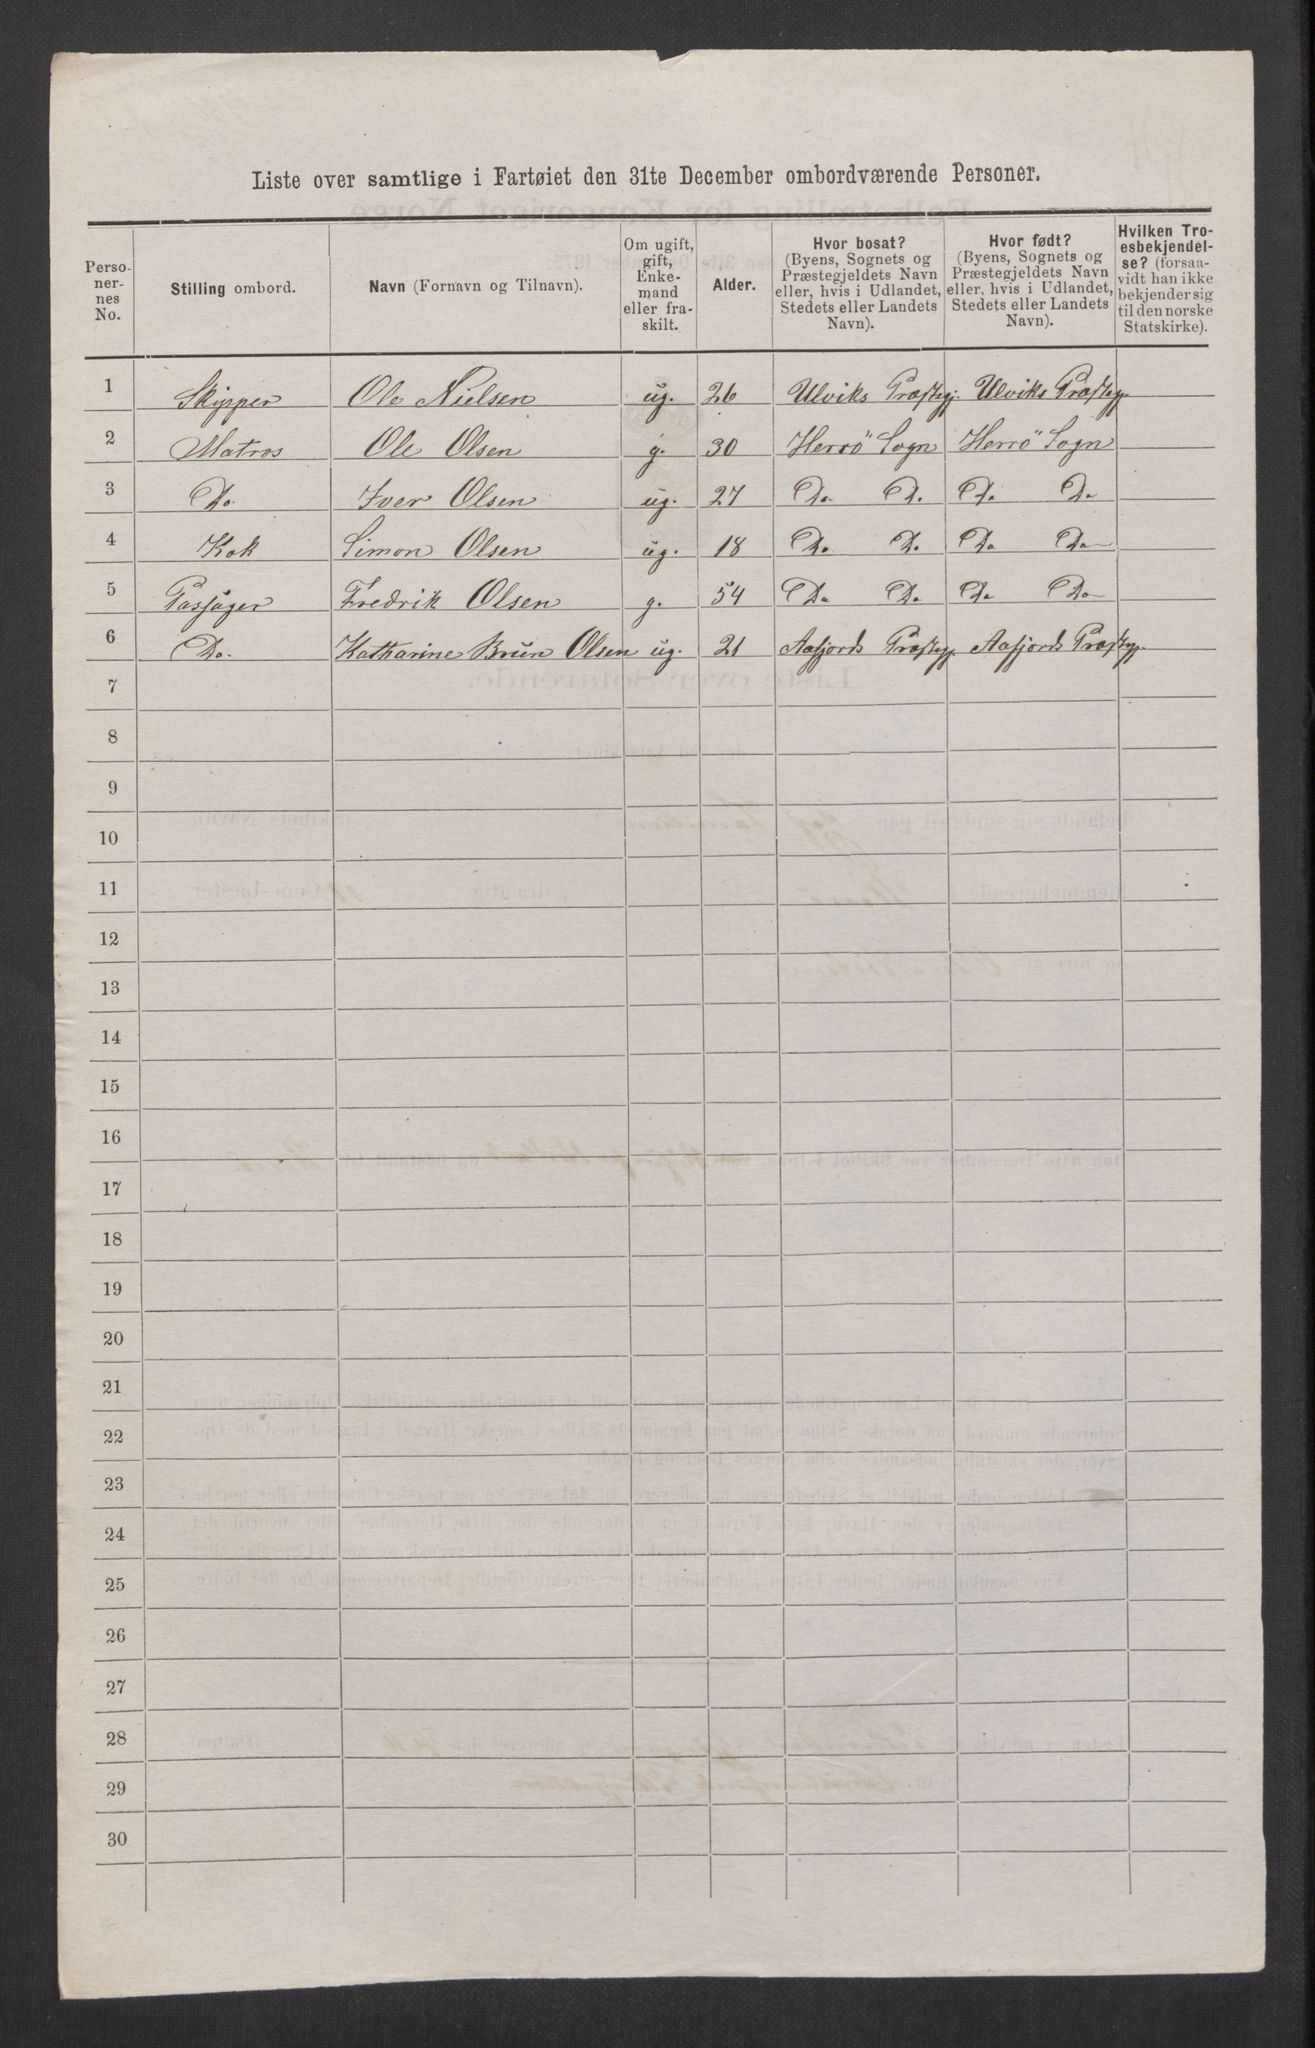 Liste over samtlige i Fartøiet den 31te December ombordværende Personer.
Perso-
ner-
nes
No.
Stilling ombord.
Navn (Fornavn og Tilnavn).
Om ugift,
gift,
Enke-
mand
eller fra-
skilt.
Alder.
Hvor bosat?
(Byens, Sognets og
Præstegjeldets Navn
eller, hvis i Udlandet,
Stedets eller Landets
Navn).
Hvor født?
(Byens, Sognets og
Præstegjeldets Navn
eller, hvis i Udlandet,
Stedets eller Landets
Navn).
Hvilken Tro-
esbekjendel-
se? (forsaa-
vidt han ikke
bekjender sig
til den norske
Statskirke).
1 Skipper Ole Nielsen ug. 26 Ulviks Præstegj. Ulviks Præstegj.
2 Matros Ole Olsen g. 30 Herrö Sogn Herrö Sogn
3 Do. Iver Olsen ug. 27 Do. Do. Do. Do
4 Kok Simon Olsen ug. 18 Do. Do. Do Do
5 Passager Fredrik Olsen g. 54 Do. Do. Do Do
6 Do. Katharine Brun Olsen ug. 21 Aafjords Præstegj. Aafjords Præstegj.
7
8
9
10
11
12
13
14
15
16
17
18
19
20
21
22
23
24
25
26
27
28
29
30